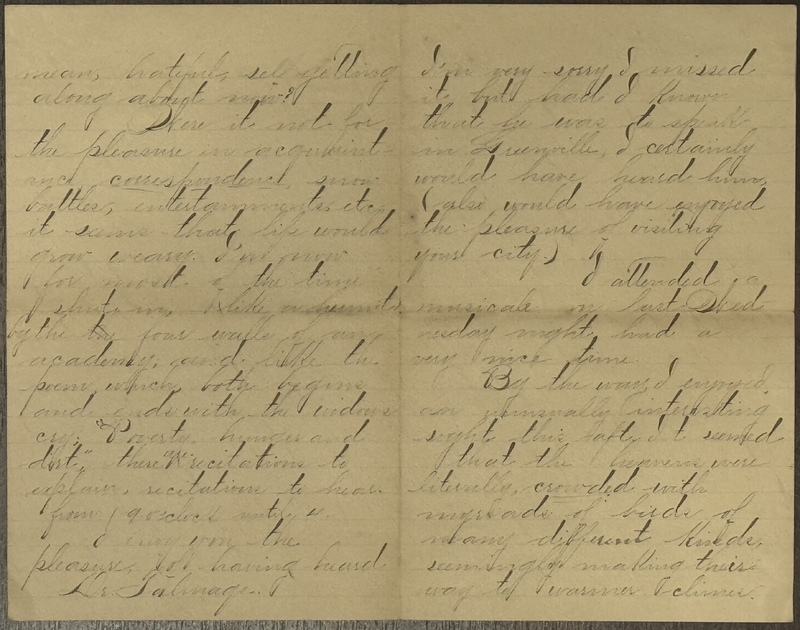 mean, hateful, self getting
along about now?
Were it not for
the pleasure in acquaint-
ance, correspondence, snow
battles, entertainments etc
it seems that life would
grow weary. I'm now
for most of the time
shut in, like a hermit
by the four walls of an
academy, and like the
poem which both begins
and ends with the widows
cry: "Poverty hunger and
dirt," there are recitations to
explain, recitations to hear
from 9 o'clock until 4.
I envy you the
pleasure of having heard
Dr. Talmage.
I'm very sorry I missed
it but had I known
that he was to speak
in Greenville, I certainly
would have heard him,
(also would have enjoyed
the pleasure of visiting
your city.)
I attended a
musicale on last Wed
nesday night, had a
very nice time.
By the way, I enjoyed
an unusually interesting
sight this It seemed
that the heavens were
literally crowded with
myriads of birds of
many different kinds,
seemingly making their
way to warmer climes.